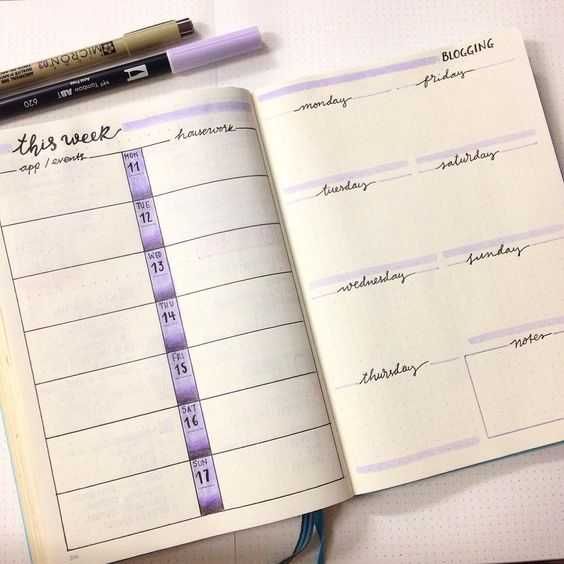 MICRON 03
620 Tombow ABT
this week
app / events
housework
MON
11
TUE
12
WED
13
THU
14
FRI
15
SAT
16
SUN
17
BLOGGING
monday
friday
tuesday
saturday
wednesday
sunday
thursday
notes